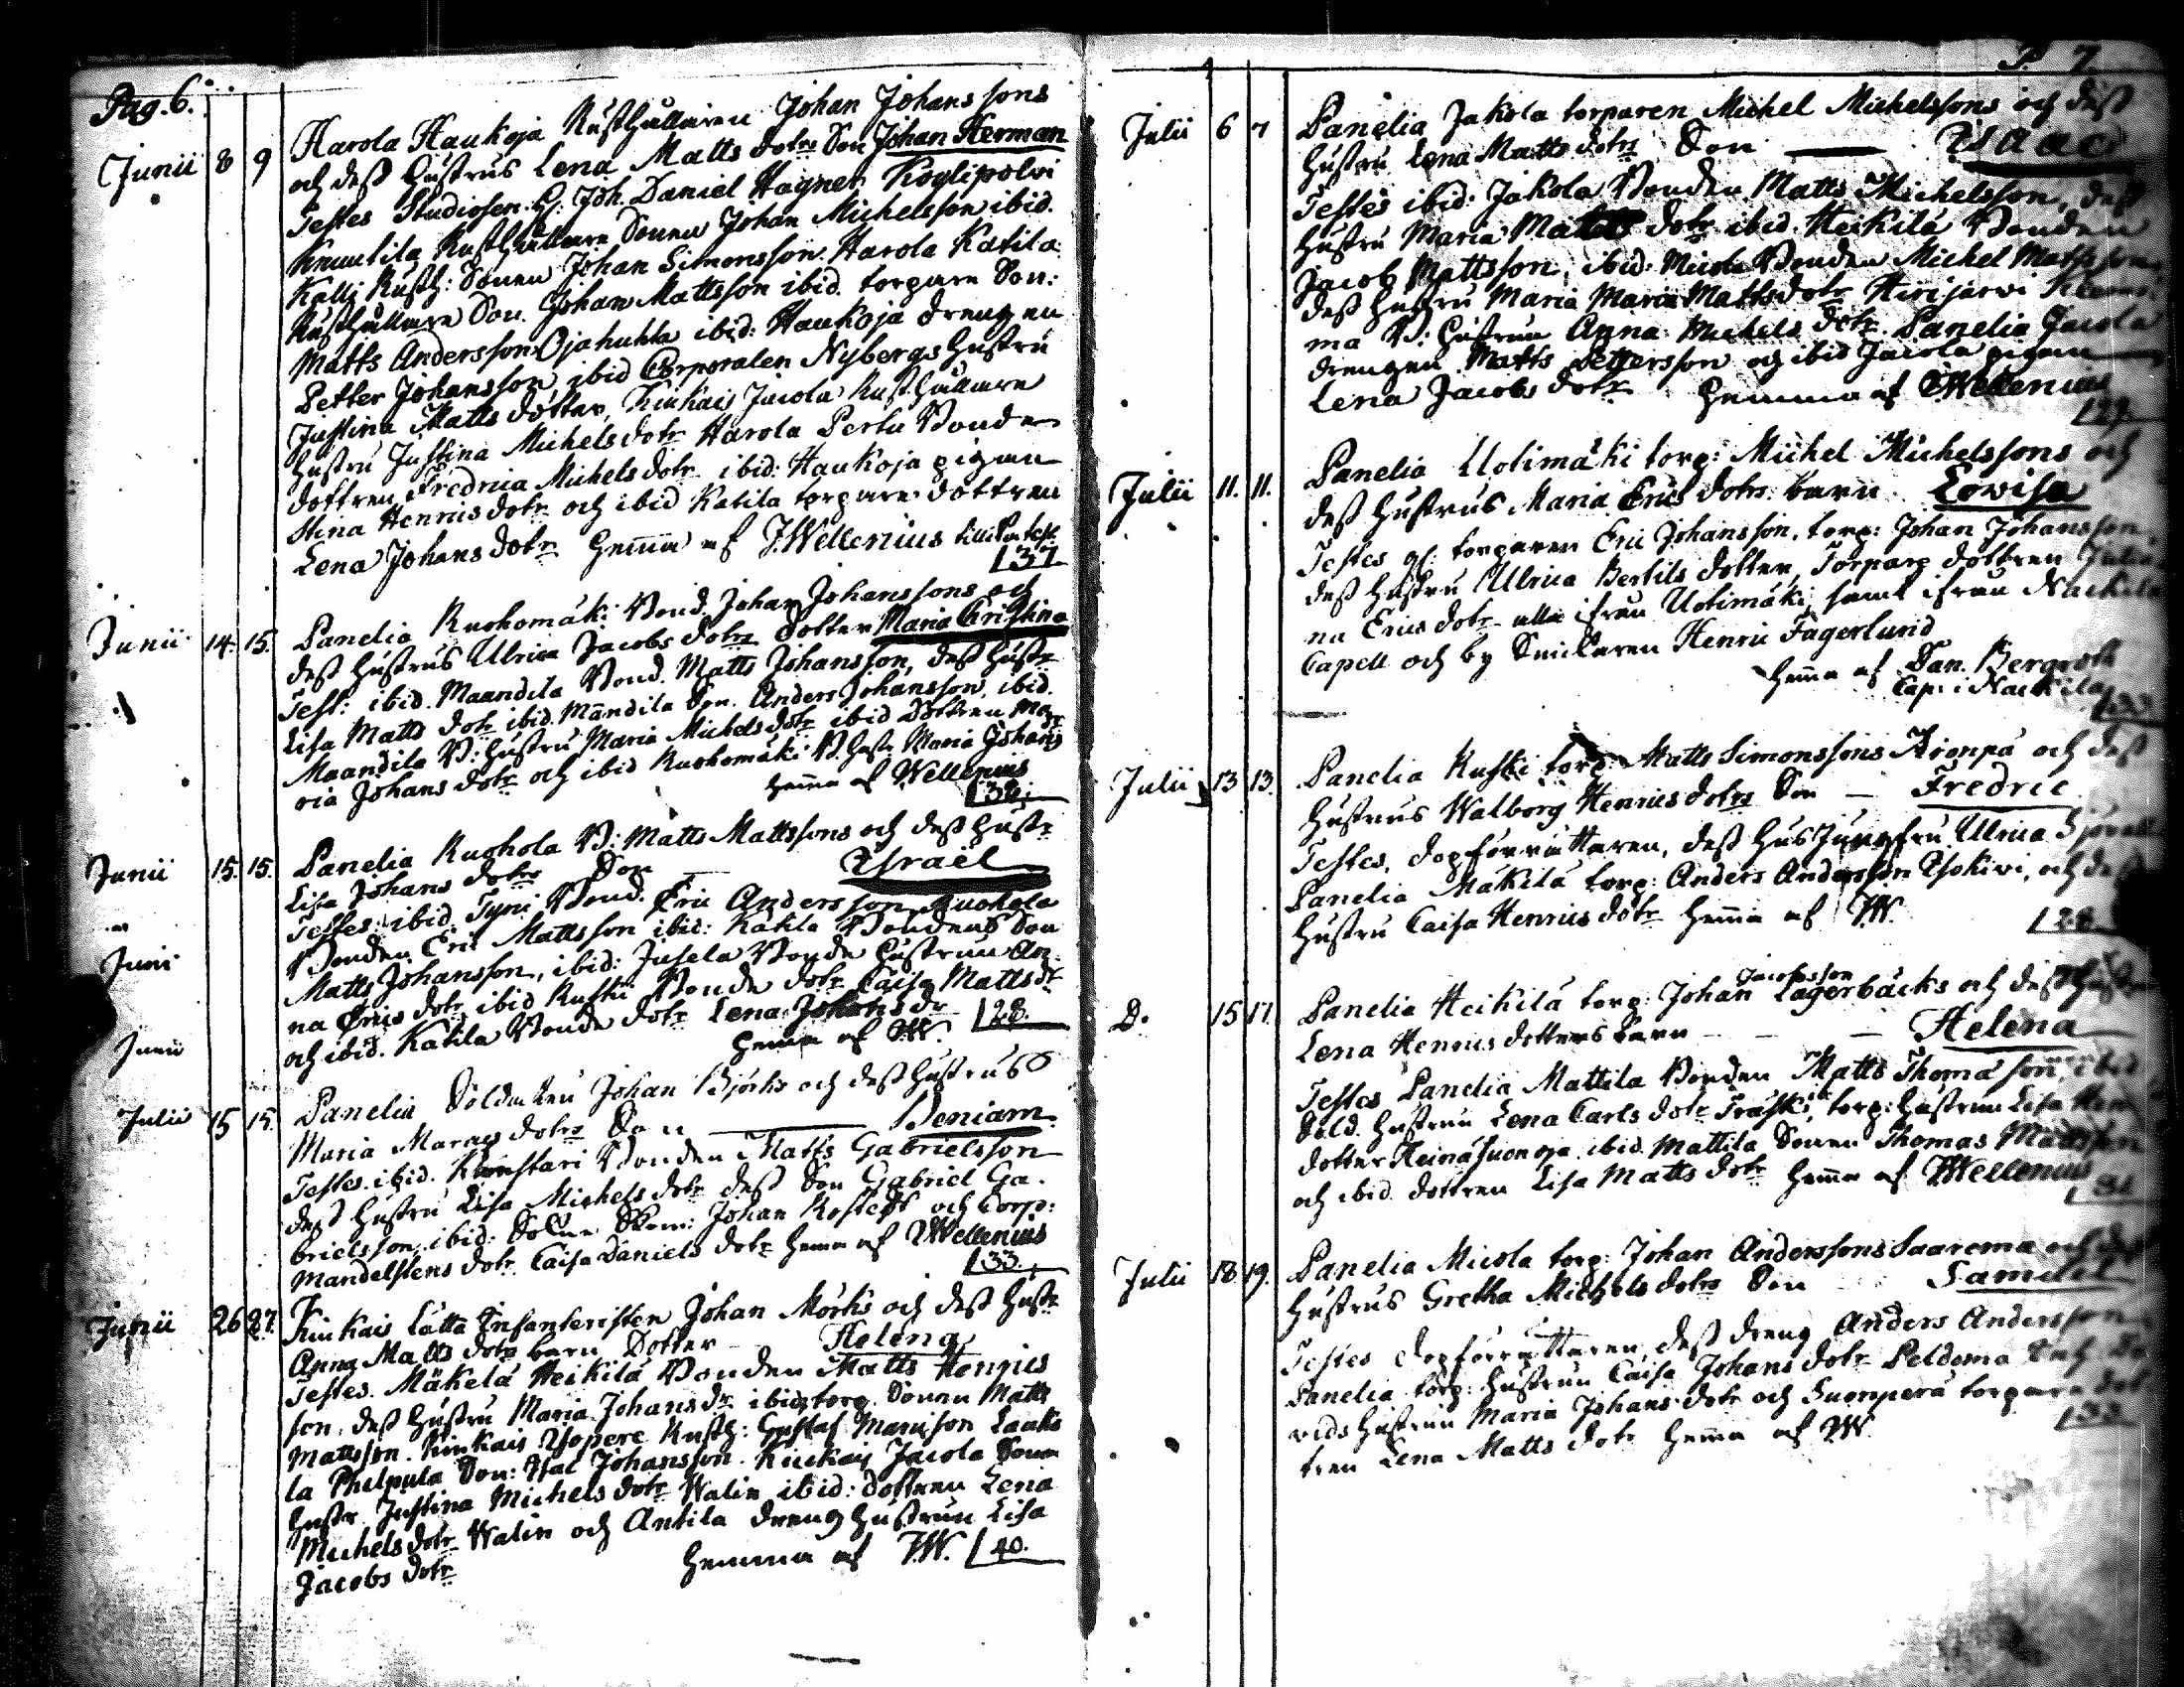 Pag. 6.
Junii 8 9 Harola Haukoja Rusthållaren Johan Johanssons
och dess Hustrus Lena Matts dotrs Son Johan Herman
Testes Studiosen H: Joh. Daniel Hagner, Köylipolvi
Knuutila Rusthållare Sonen Johan Michelsson ibid.
Kalli Rusth: Sonen Johan Simonsson. Harola Katila
Rusthållare Son. Johan Mattsson ibid. torpare Son:
Matts Andersson Ojahuhta ibid: Haukoja drengen
Petter Johansson, ibid Corporalen Nybergs Hustru
Justina Matts dotter, Kiukais Jacola Rusthållare
Hustru Justina Michels dotr Harola Pertu Bonde
dottren Fredrica Michels dotr ibid: Haukoja pigan
Stina Henrics dotr och ibid Katila torpare dottren
Lena Johans dotr Hemma af J. Wellenius
37
Junii 14. 15. Panelia Ruohomäki Bond. Johan Johanssons och
dess Hustrus Ulrica Jacobs dotrs dotter Maria Christina
Test: ibid. Maandila Bond. Matts Johansson, dess Hustr
Lisa Matts dotr ibid. Mandila Son. Anders Johansson, ibid.
Maandila B: Hustru Maria Michels dotr ibid Dottren Ma
ria Johans dotr och ibid Ruohomäki B. Hustr Maria Johans
Hemma af Wellenius
Junii 15. 15. Panelia Ruohola B: Matts Mattssons och dess Hustr
Lisa Johans dotrs Son Israël
Testes: ibid. Tyni Bond. Eric Andersson Ruohola
Bonden Eric Mattsson ibid: Katila Bondens Son
Matts Johansson, ibid: Jusela Bonde Hustrun An
na Erics dotr, ibid Ruski Bonde dotr Caisa Matts dr
och ibid. Katila Bonde dotr Lena Johans dr
Hemma af J.W. 28.
Juni
Junii
Julii 15 15. Panelia Soldaten Johan Björks och dess Hustrus
Maria Marcus dotrs Son Beniam
Testes. ibid. Kunstari Bonden Matts Gabrielsson
dess Hustru Lisa Michels dotr dess Son Gabriel Ga
brielsson, ibid: Johan Rostedt och Corp:
Mandelstens dotr Caisa Daniels dotr Hemma af J Wellenius
33.
Junii 26 27. Kiukais Lätta Infanteristen Johan Mörks och dess Hustr
Anna Matts dotrs barn Dotter Helena
Testes. Mäkelä Heikilä Bonden Matts Henrics
son, dess Hustru Maria Johans dr ibid. torp. Sonen Matts
Mattsson. Kiukais Ylopere Rusth: Gustaf Mansson Laaks
la Philpula Son: Isac Johansson. Kiukais Jacola Sone
Hustr Justina Michels dotr Walin ibid: dottren Lena
Michels dotr Walin och Antila dreng Hustrun Lisa
Jacobs dotr Hemma af J.W. 40.
P. 7
Julii 6 7 Panelia Jakola torparen Michel Michelssons och dess
Hustru Lena Matts dotrs Son Isaac
Testes ibid: Jakola Bonden Matts Michelsson, dess
Hustru Maria Matts dotr ibid. Heikilä Bonden
Jacob Mattsson, ibid: Micola Bonden Michel Mattsson
dess Hustru Maria Maria Matts dotr Hirijärvi
ma B: Hustrun Anna Michels dotr. Panelia Jacola
drengen Matts Pettersson och ibid Jacola pigan
Lena Jacobs dotr Hemma af J Wellenius
29
Julii 11. 11. Panelia Uotimäki torp: Michel Michelssons och
dess Hustrus Maria Erics dotrs barn Lovisa
Testes gl. torparen Eric Johansson, torp: Johan Johansson,
dess Hustru Ulrica Bertils dotter, Torpare dottren Julia
na Erics dotr alla ifrån Uotimäki samt ifrån Nackila
Capell och by Snickaren Henric Fagerlund
Hemma af Dan. Bergroth
Cap: i Nackila 33
Julii 13 13. Panelia Ruski torp: Matts Simonssons Krönpä och dess
Hustrus Walborg Henrics dotrs Son Fredric
Testes, dopförrättaren, dess Hus Jungfru Ulrica
Panelia Mäkilä torp: Anders Andersson Isokivi, och dess
Hustru Caisa Henrics dotr Hemma af J.W. 28
D. 15 17. Panelia Heikilä torp: Johan Jacobsson Lagerbäcks och dess Hustru
Lena Henrics dotters barn Helena
Testes Panelia Mattila Bonden Matts Thomasson, ibid
Sold. Hustrun Lena Carls dotr Träski torp: Hustrun Lisa
dotter Heinäsuonoja, ibid. Mattila Sonen Thomas Mattsson
och ibid. dottren Lisa Matts dotr Hemma af J Wellenius
31
Julii 18 19. Panelia Micola torp: Johan Anderssons Saarema och dess
Hustrus Gretha Michels dotrs Son Samuel
Testes dopförrättaren, dess dreng Anders Andersson
Panelia torp: Hustrun Caisa Johans dotr Peldoma
vids Hustrun Maria Johans dotr och Suonperä torpare dot
tren Lena Matts dotr Hemma af J.W. 33